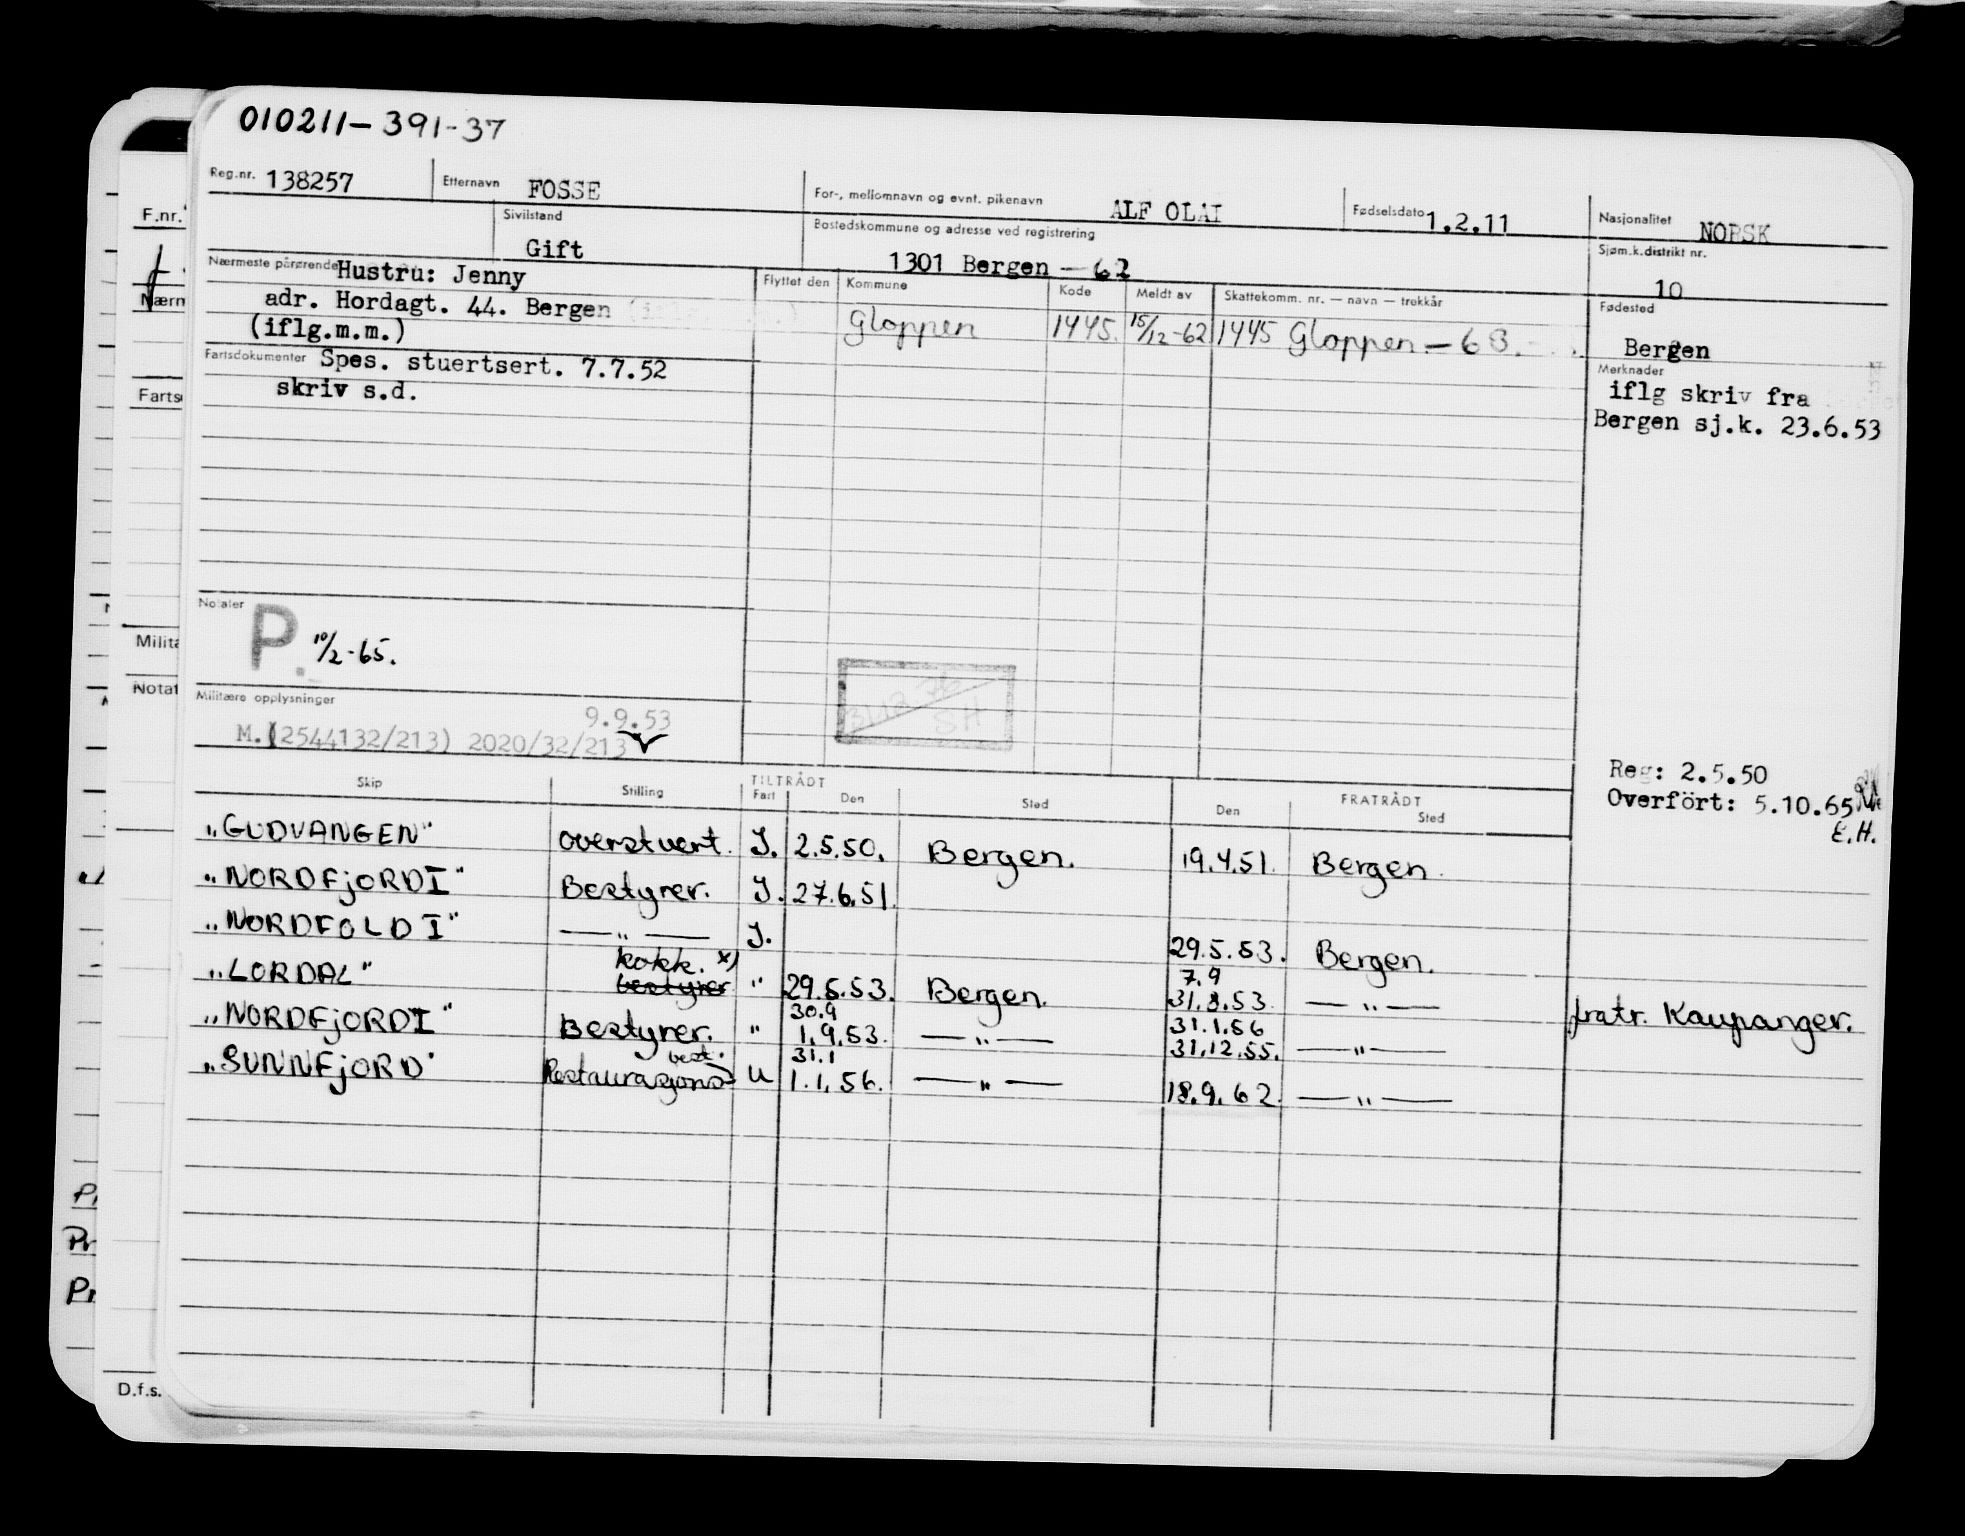 010211-391-37
Reg.nr. 138257 Etternavn FOSSE For-, mellomnavn og evnt. pikenavn ALF OLAI Fødselsdato 1.2.11 Nasjonalitet NORSK
Sivilstand Gift Bostedskommune og adresse ved registrering 1301 Bergen - 62 Sjøm.k.distrikt nr. 10
Nærmeste pårørende Hustru: Jenny Flyttet den Kommune Kode Meldt av Skattekomm. nr. — navn — trekkår Fødested
adr. Hordagt. 44. Bergen Gloppen 1445. 15/12-62 1445 Gloppen - 63. Bergen
(iflg.m.m.)
Fartsdokumenter Spes. stuertsert. 7.7.52 Merknader
skriv s.d. iflg skriv fra
Bergen sj.k. 23.6.53
Notater
P. 10/2-65.
31.12.76
SH
Militære opplysninger
9.9.53
M.(2544132/213) 2020/32/213
Reg: 2.5.50
Overført: 5.10.65
E.H.
Skip Stilling TILTRÅDT FRATRÅDT
Fart Den Sted Den Sted
"GUDVANGEN" overstuert. I. 2.5.50. Bergen. 19.4.51. Bergen.
"NORDFjORD I" Bestyrer. I. 27.6.51.
"NORDFOLD I" — " — I. 29.5.53. Bergen.
kokk. x) 7.9
"LORDAL" bestyrer " 29.5.53. Bergen. 31.8.53. — " — fratr. Kaupanger.
30.9 31.1.56
"NORDFjORD I" Bestyrer. " 1.9.53. — " — 31.12.55. — " —
best. 31.1
"SUNNFjORD" Restaurasjons- U 1.1.56. — " — 18.9.62. — " —
F.nr.
Nærn
Farts
Milita
Notat
Pr
Pr
D.f.s.